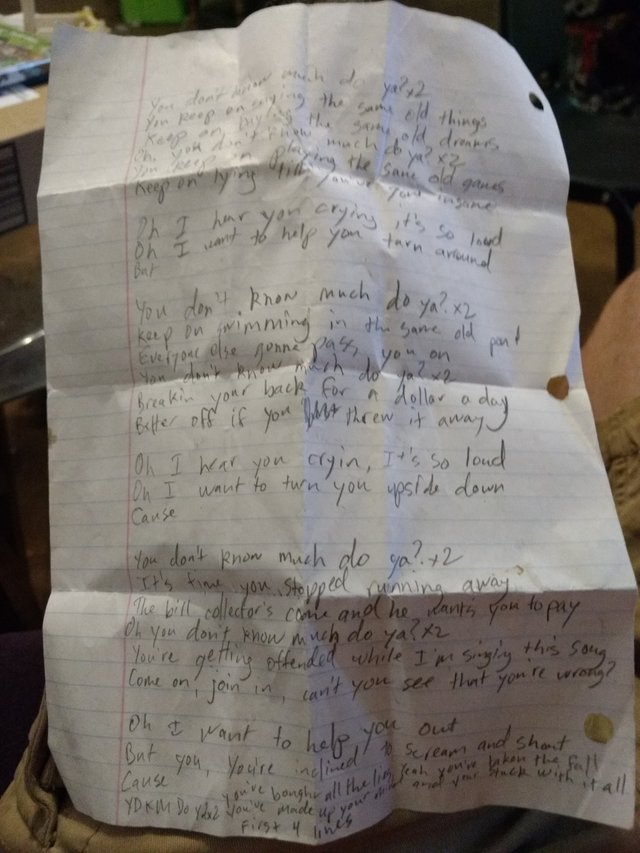 You don't know much do ya? x2
You keep on saying the same old things
Keep on buying the same old dreams
Oh, you don't know much do ya? x2
You keep on playing the same old games
Keep on lying till you've gone insane
Oh I hear you crying, it's so loud
Oh I want to help you turn around
But
You don't know much do ya? x2
Keep on swimming in the same old pond
Everyone else gonna pass you on
You don't know much do ya? x2
Breakin your back for a dollar a day
Better off if you threw it away
Oh I hear you cryin, It's so loud
Oh I want to turn you upside down
Cause
You don't know much do ya? x2
It's time you stopped running away
The bill collector's came and he wants you to pay
Oh you don't know much do ya? x2
You're getting offended while I'm singing this song
Come on, join in, can't you see that you're wrong?
Oh I want to help you out
But you, you're inclined to scream and shout
Cause you've bought all the lies, yeah you've taken the fall
YDKM Do Ya x2 you've made up your mind and your stuck with it all
First 4 lines